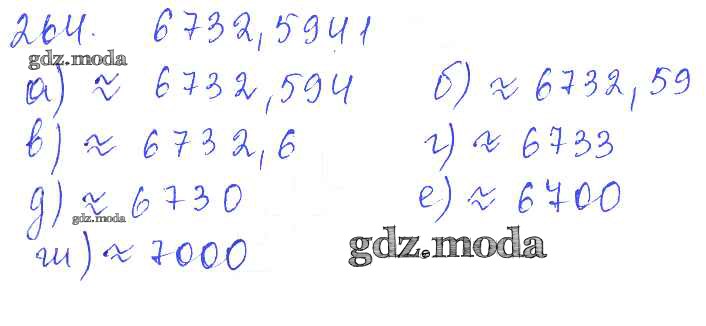 264. 6732,5941
gdz.moda
а) ≈ 6732,594 б) ≈ 6732,59
в) ≈ 6732,6 г) ≈ 6733
д) ≈ 6730 е) ≈ 6700
gdz.moda
ж) ≈ 7000
gdz.moda